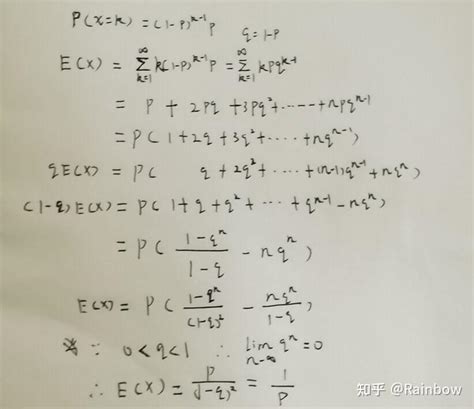 P(X=k) = (1-P)^{k-1}P    q=1-P
E(X) = \sum_{k=1}^{∞} k(1-P)^{k-1}P = \sum_{k=1}^{∞} kpq^{k-1}
= P + 2Pq + 3Pq² + ····· + nPq^{n-1}
= P(1+2q+3q²+ ···· + nq^{n-1})
qE(X) = P(    q + 2q² + ··· + (n-1)q^{n-1} + nq^n)
(1-q)E(X) = P(1+q+q²+ ··· + q^{n-1} - nq^n)
= P(\frac{1-q^n}{1-q} - nq^n)
E(X) = P(\frac{1-q^n}{(1-q)²} - \frac{nq^n}{1-q})
∵ 0<q<1 ∴ \lim_{n→∞} q^n = 0
∴ E(X) = \frac{P}{(1-q)²} = \frac{1}{P}
知乎 @Rainbow